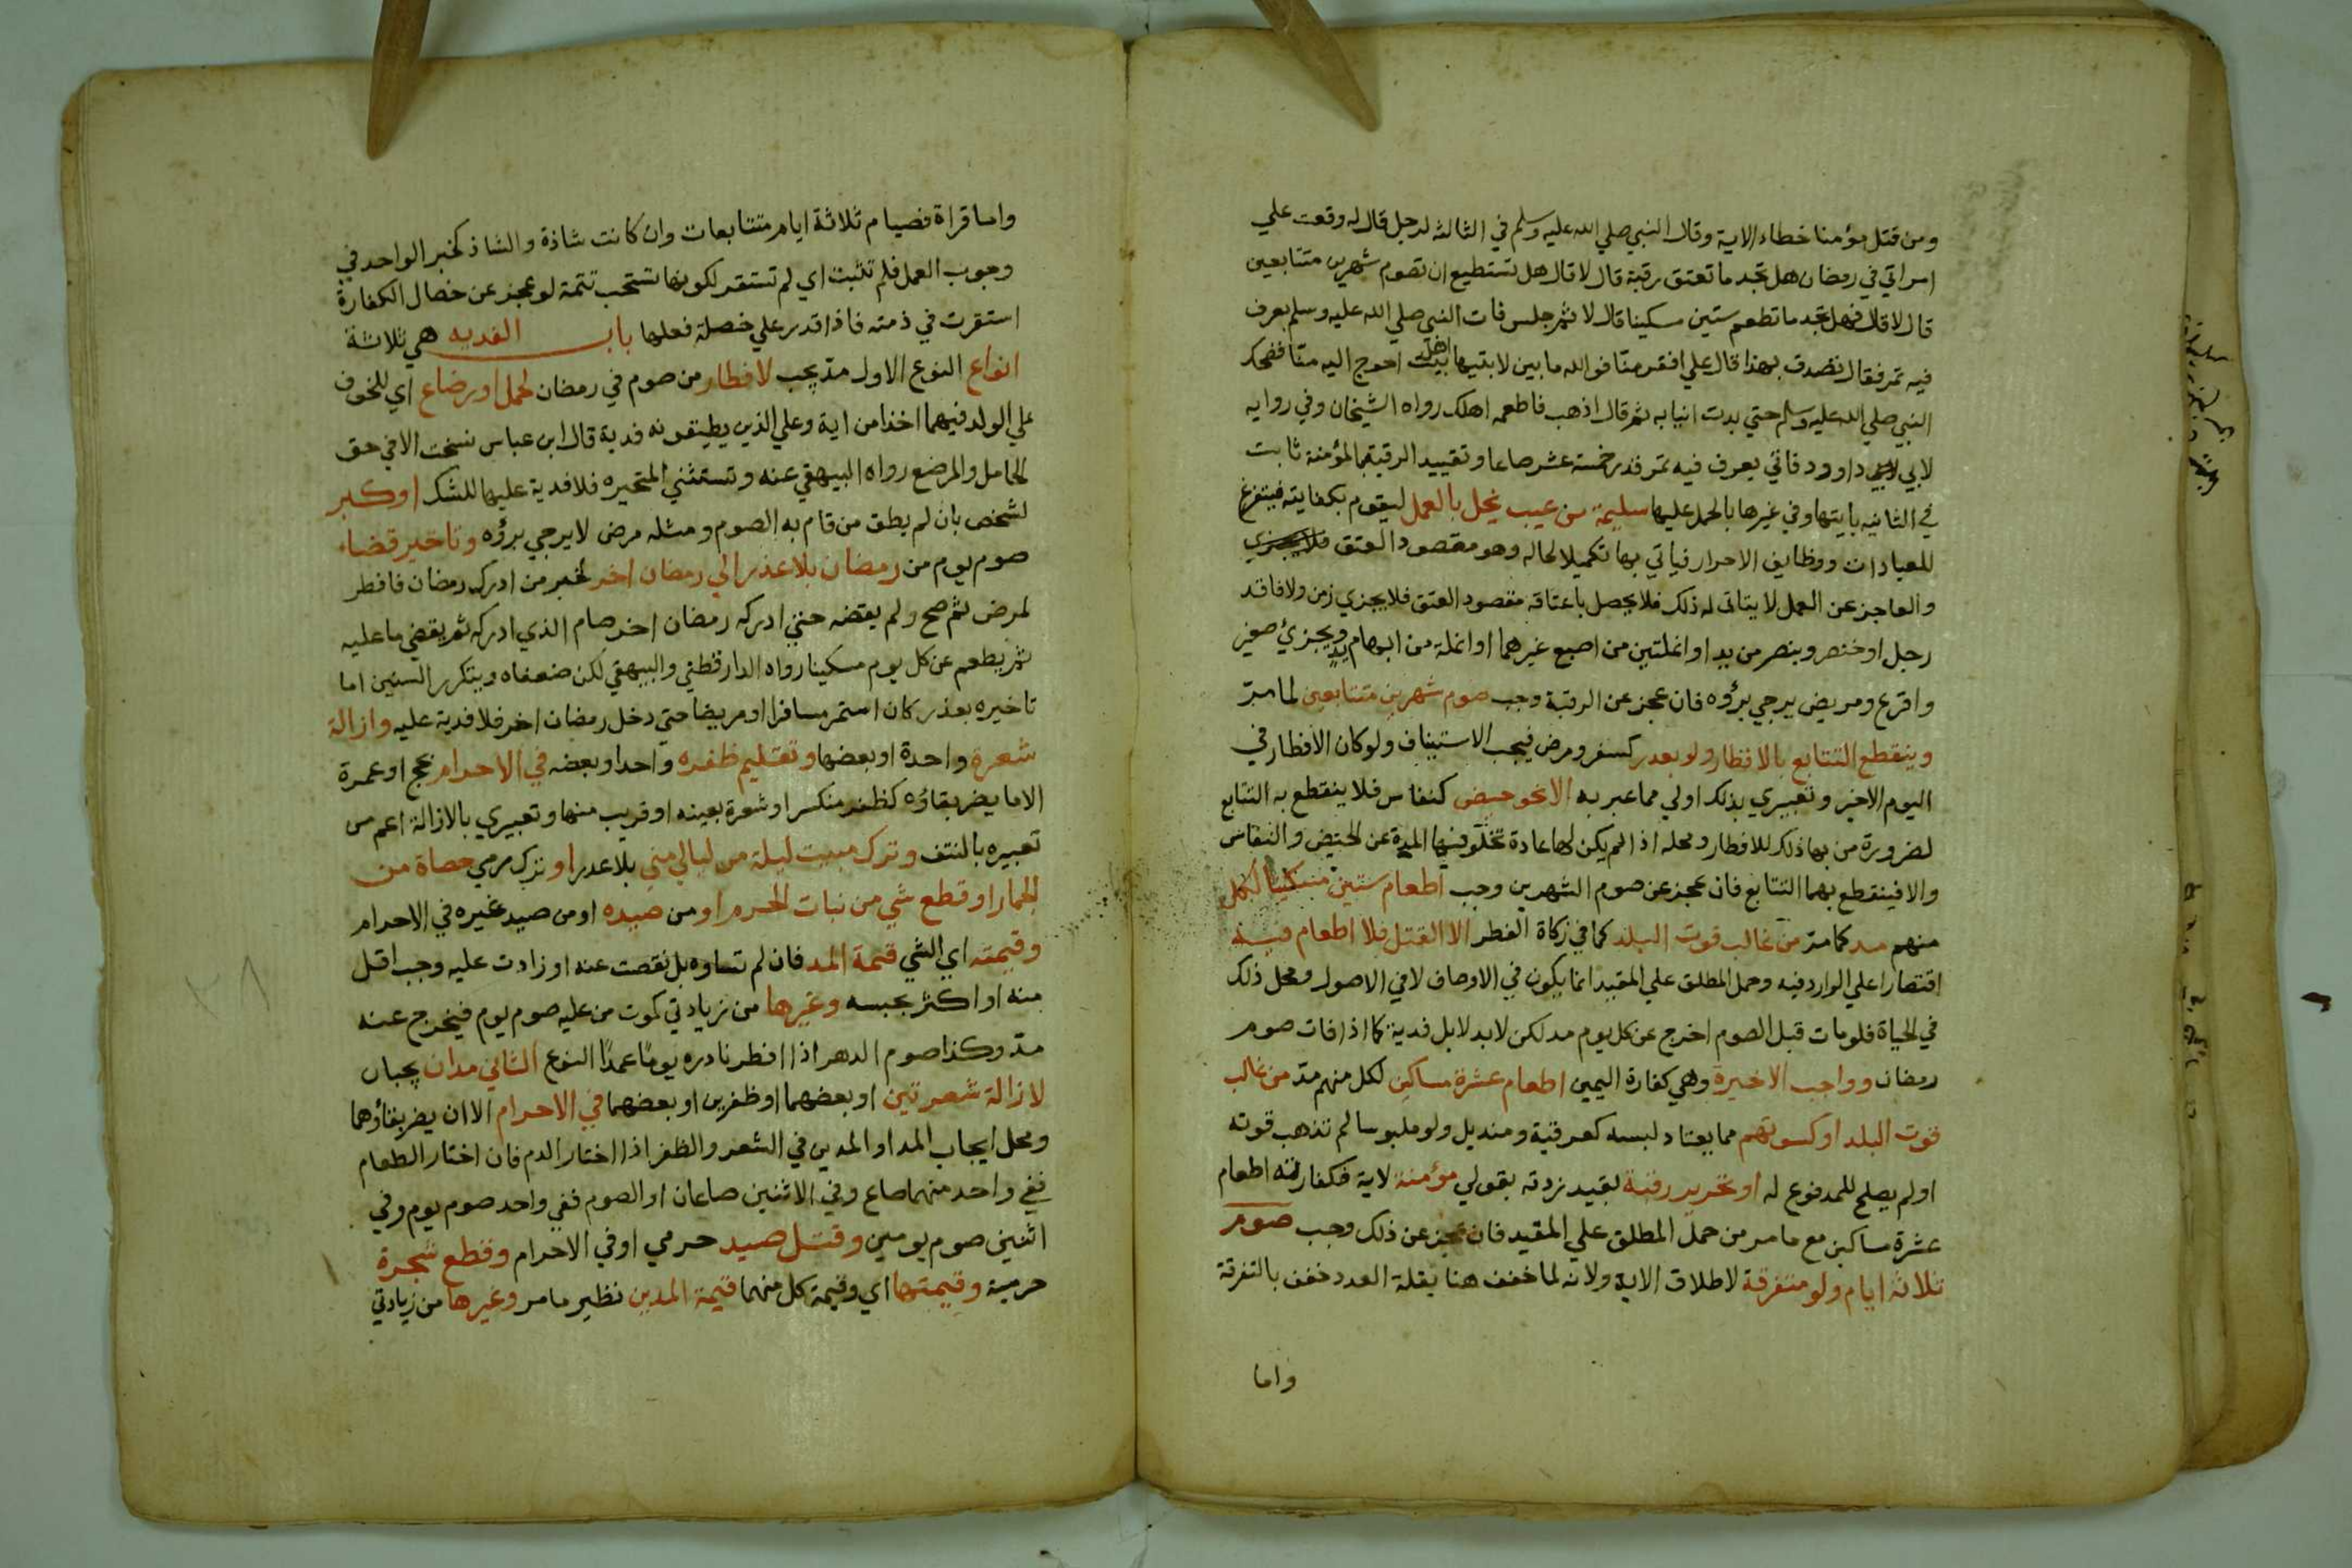 ومن قتل مؤمنا خطاء الاية وقال النبي صلي الله عليه وسلم في الثالثة لرجل قال له وقعت علي
امراتي في رمضان هل تجد ما تعتق رقبة قال لا قال هل تستطيع ان تصوم شهرين متتابعين
قال لا قال فهل تجد ما تطعم ستين مسكينا قال لا ثم جلس فات النبي صلي الله عليه وسلم بعرف
فيه تمر فقال تصدق بهذا قال علي افقر منا فوالله ما بين لابتيها اهل بيت احوج اليه منا فضحك
النبي صلي الله عليه وسلم حتي بدت انيابه ثم قال اذهب فاطعمه اهلك رواه الشيخان وفي رواية
لابي داوود فاتي بعرف فيه تمر قدر خمسة عشر صاعا وتقييد الرقبة بالمؤمنة ثابت
في الثانيه بايتها وفي غيرها بالحمل عليها سليمة من عيب يخل بالعمل ليقوم بكفايته فيتفرغ
للعبادات ووظايف الاحرار فياتي بها تكميلا لحاله وهو مقصود العتق
والعاجز عن العمل لا يتاتى له ذلك فلا يحصل باعتاقه مقصود العتق فلا يجزي زمن ولا فاقد
رجل او خنصر وبنصر من يد او انملتين من اصبع غيرهما او انملة من ابهام يد ويجزئ صغير
واقرع ومريض يرجي برؤه فان عجز عن الرقبة وجب صوم شهرين متتابعين لما مر
وينقطع التتابع بالافطار ولو بعدر كسفر ومرض فيجب الاستيناف ولو كان الافطار في
اليوم الاخير وتعبيري بذلك اولي مما عبر به الا نحو حيض كنفاس فلا ينقطع به التتابع
لضرورة من بها ذلك للافطار ومحله اذا لم يكن لها عادة تخلو فيها المدة عن الحيض والنفاس
والا فينقطع بهما التتابع فان عجز عن صوم الشهرين وجب اطعام ستين مسكينا لكل
منهم مد كما مر من غالب قوت البلد كما في زكاة الفطر الا القتل فلا اطعام فيه
اقتصارا علي الوارد فيه وحمل المطلق علي المقيد انما يكون في الاوصاف لا في الاصول ومحل ذلك
في الحياة فلو مات قبل الصوم اخرج عن كل يوم مد لكن لا بدلا بل فدية كما اذا فات صوم
رمضان وواجب الاخيرة وهي كفارة اليمين اطعام عشرة مساكين لكل منهم مد من غالب
قوت البلد او كسوتهم مما يعتاد لبسه كعرقية ومنديل ولو ملبوسا لم تذهب قوته
او لم يصلح للمدفوع له او تحرير رقبة بقيد زدته بقولي مؤمنة لاية فكفارته اطعام
عشرة مساكين مع ما مر من حمل المطلق علي المقيد فان عجز عن ذلك وجب صوم
ثلاثه ايام ولو متفرقة لاطلاق الاية ولانه لما خفف هنا بقلة العدد خفف بالتفرقة
واما
واما قراة فصيام ثلاثة ايام متتابعات وان كانت شاذة والشاذ كخبر الواحد في
وجوب العمل فلم تثبت اي لم تستقر لكونها تستحب تتمة لو عجز عن خصال الكفارة
استقرت في ذمته فاذا قدر علي خصلة فعلها باب الفديه هي ثلاثة
انواع النوع الاول مد يجب لافطار من صوم في رمضان لحمل او رضاع اي للخوف
علي الولد فيهما اخذا من اية وعلي الذين يطيقونه فدية قال ابن عباس نسخت الا في حق
الحامل والمرضع رواه البيهقي عنه وتستثني المتحيره فلا فدية عليها للشك او كبر
لشخص بان لم يطق من قام به الصوم ومثله مرض لا يرجي برؤه وتاخير قضاء
صوم يوم من رمضان بلا عذر الي رمضان اخر لخبر من ادركه رمضان فافطر
لمرض ثم صح ولم يقضه حتي ادركه رمضان اخر صام الذي ادركه ثم يقضي ما عليه
ثم يطعم عن كل يوم مسكينا رواه الدارقطني والبيهقي لكن ضعفاه ويتكرر السنين اما
تاخيره بعذر كان استمر مسافرا او مريضا حتي دخل رمضان اخر فلا فدية عليه وازالة
شعرة واحدة او بعضها وتقليم ظفره واحدا وبعضه في الاحرام بحج او عمرة
الا ما يضر بقاؤه كظفر منكسر او شعرة بعينه او قريب منها وتعبيري بالازالة اعم من
تعبيره بالنتف وترك مبيت ليلة من ليالي مني بلا عدر او ترك رمي حصاة من
الجمار او قطع شي من نبات الحرم او من صيده او من صيد غيره في الاحرام
وقيمته اي الشي قيمة المد فان لم تساوه بل نقصت عنه او زادت عليه وجب اقل
منه او اكثر بحبسه وغيرها من زيادتي كموت من عليه صوم يوم فيخرج عنه
مد وكذا صوم الدهر اذا افطر نادره يوما عمدا النوع الثاني مدان يجبان
لازالة شعرتين او بعضهما او ظفرين او بعضهما في الاحرام الا ان يضر بقاؤهما
ومحل ايجاب المد او المدين في الشعر والظفر اذا اختار الدم فان اختار الطعام
ففي واحد منهما صاع وفي الاثنين صاعان او الصوم ففي واحد صوم يوم وفي
اثنين صوم يومين وقتل صيد حرمي او في الاحرام وقطع شجرة
حرمية وقيمتها اي وقيمة كل منهما قيمة المدين نظير ما مر وغيرها من زيادتي